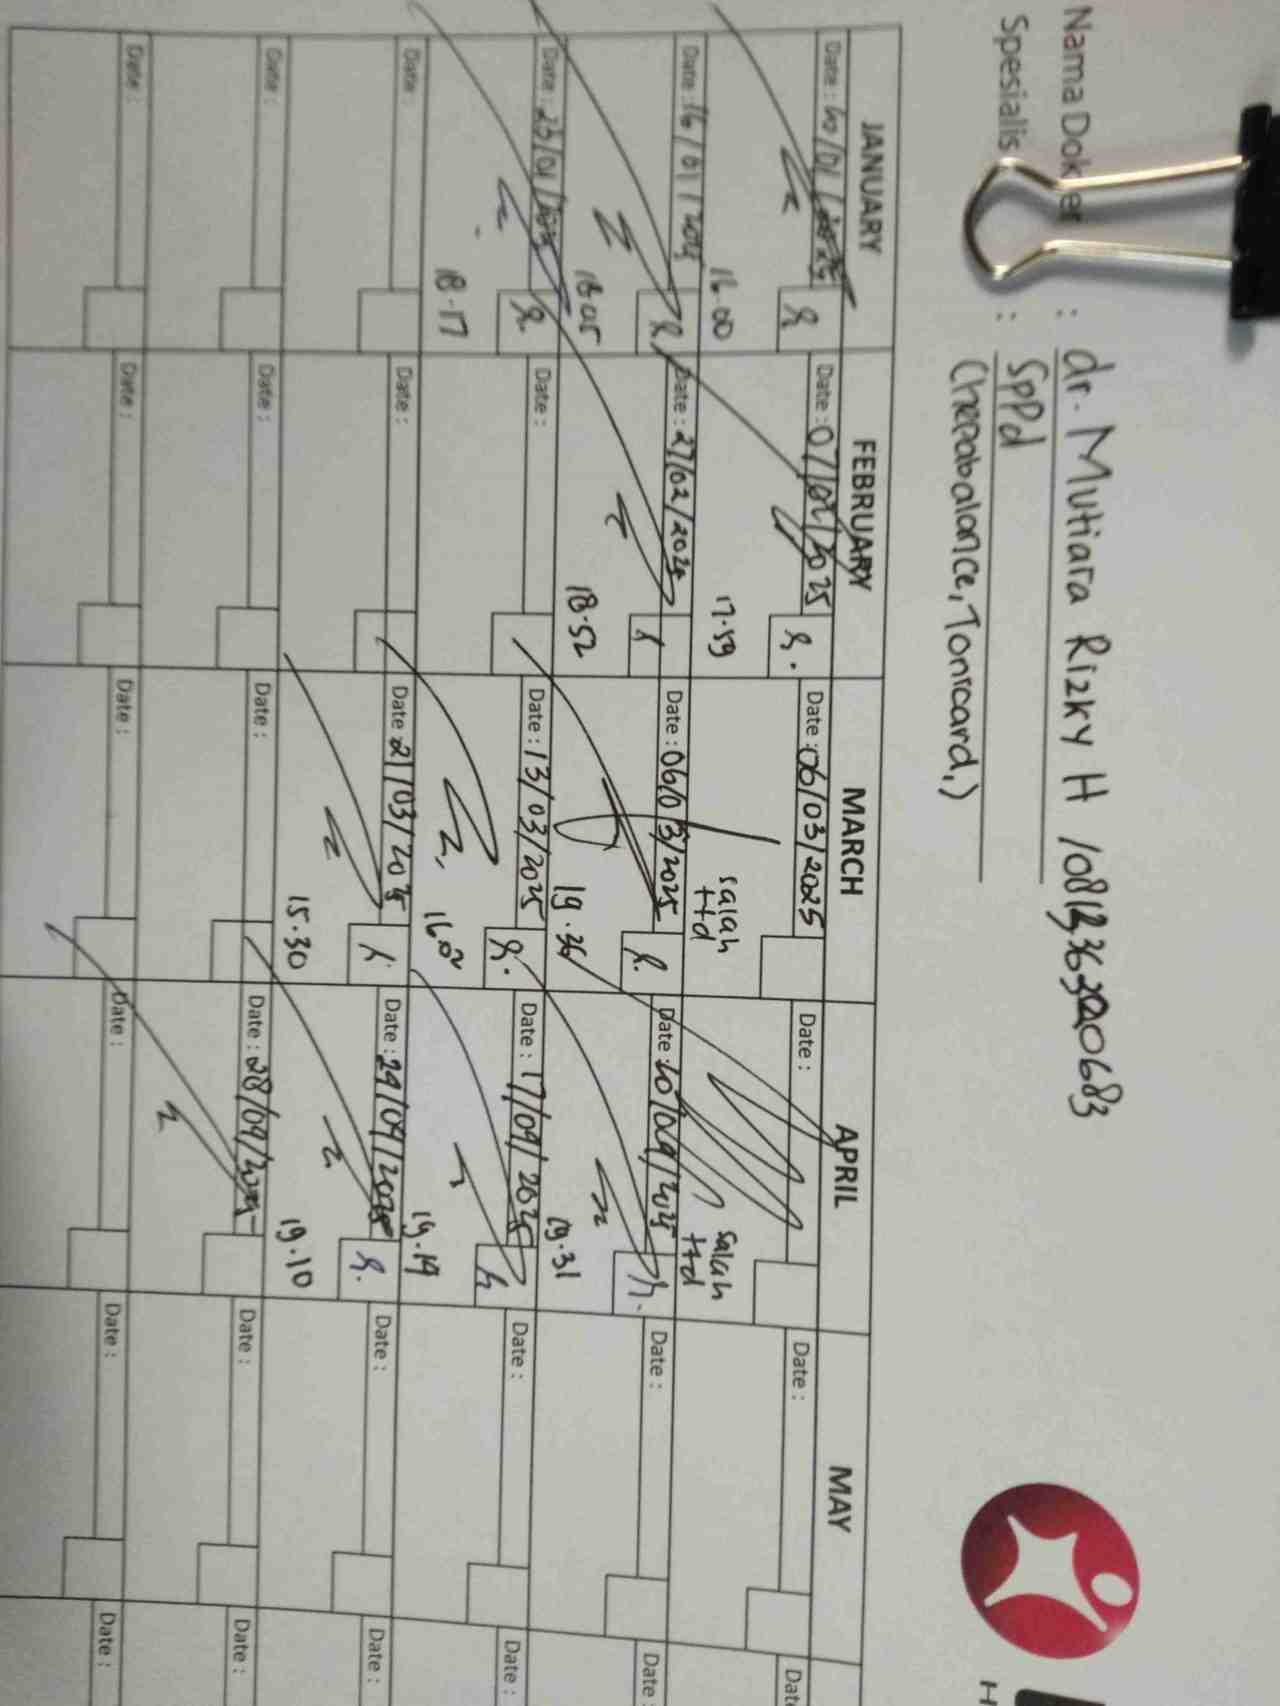 Nama Dokter : dr. Mutiara Rizky H
Spesialis : SpPd
JANUARY FEBRUARY MARCH APRIL MAY
Date : Date : 07/02/2025 Date : 06/03/2025 Date : Date : Date
16.00 17.59 salah ttd salah ttd
Date : 16/01/2025 Date : 27/02/2025 Date : 06/03/2025 Date : Date : Date :
18.05 18.52 19.36
Date : 23/01/2025 Date : Date : 13/03/2025 Date : 17/04/2025 Date : Date :
18.17 16.02 19.31
Date : Date : Date : 21/03/2025 Date : Date : Date :
15.30 19.19
Date : Date : Date : Date : Date : Date :
19.10
Date : Date : Date : Date : Date : Date :
H